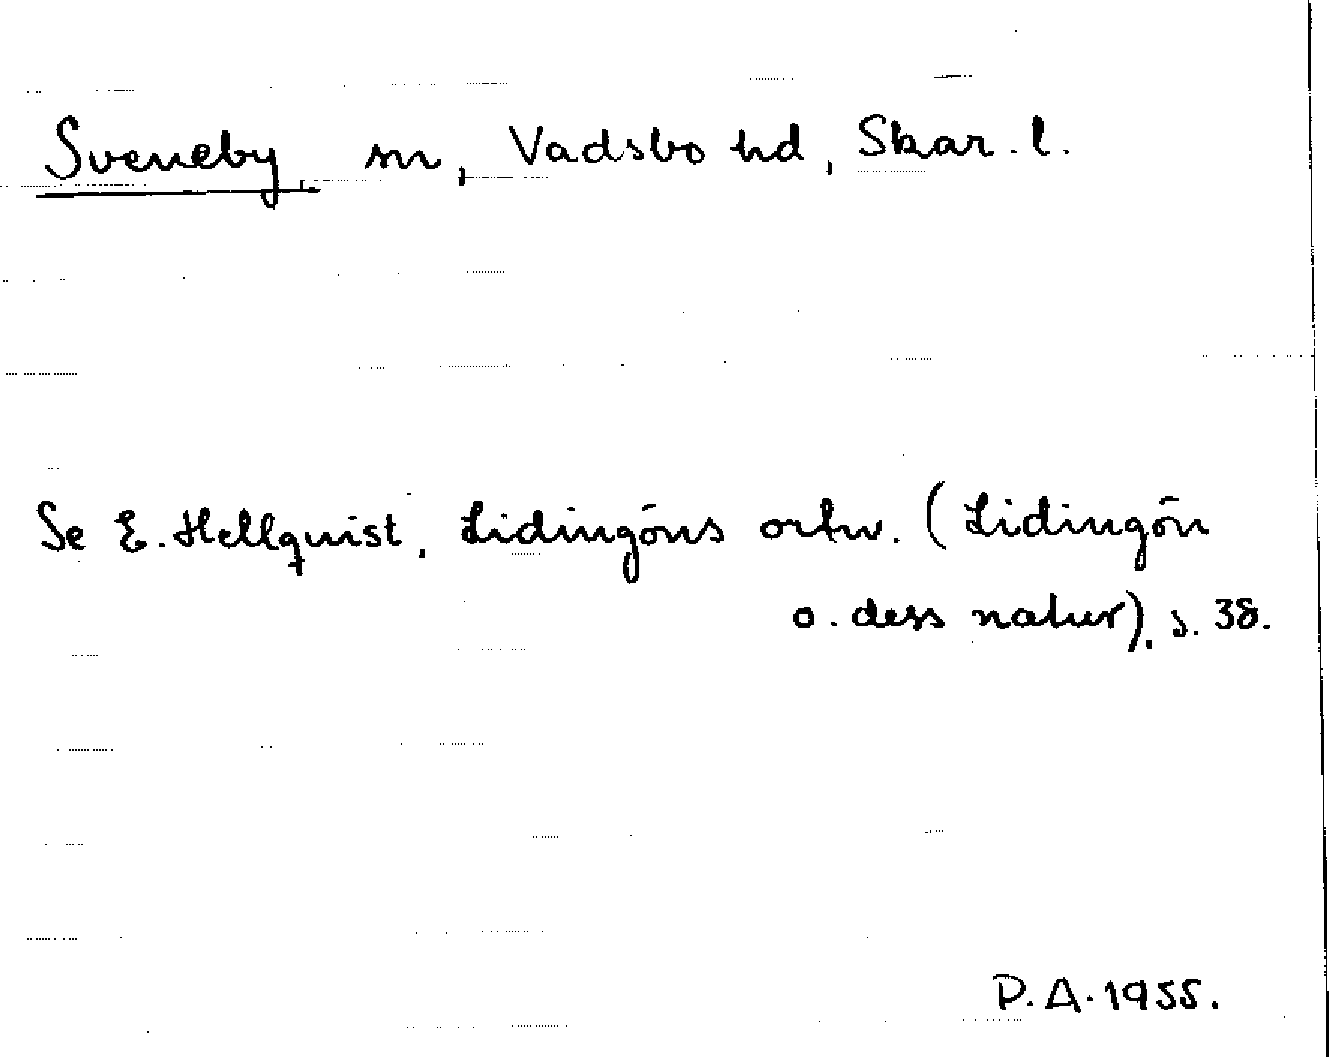 Sveneby sn, Vadsbo hd, Skar. l.
Se E. Hellquist, Lidingöns ortn. (Lidingön
o. dess natur), s. 38.
P.A. 1955.